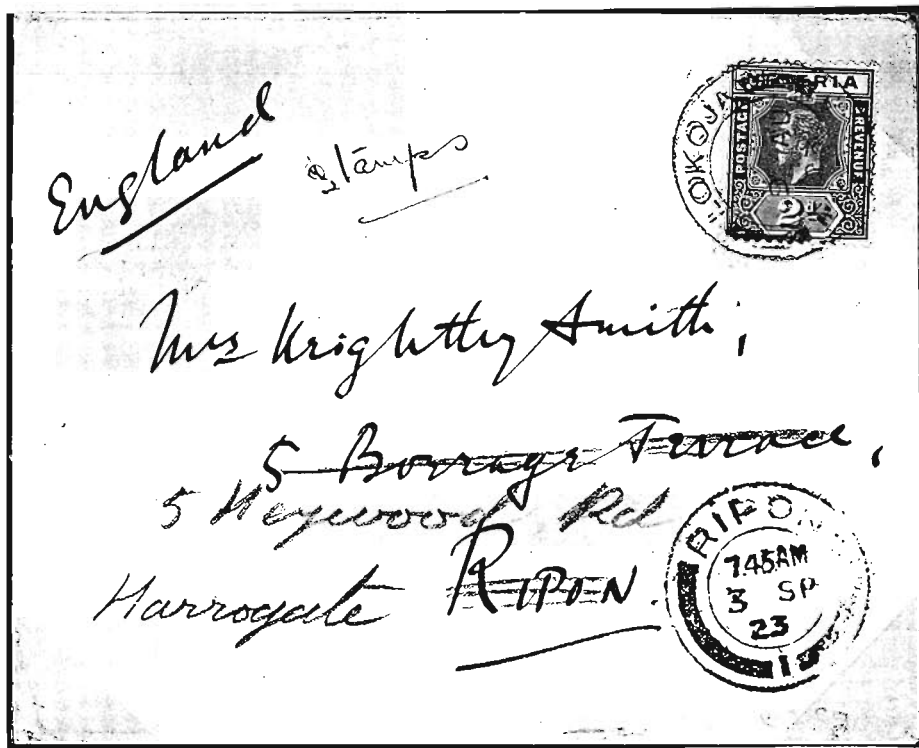 England
Stamps
LOKOJA
AU
NIGERIA
POSTAGE
REVENUE
2d
Mrs Krightley Smith,
5 Borrage Terrace,
5 Heywood Rd
Harrogate RIPON.
RIPON
7.45AM
3 SP
23